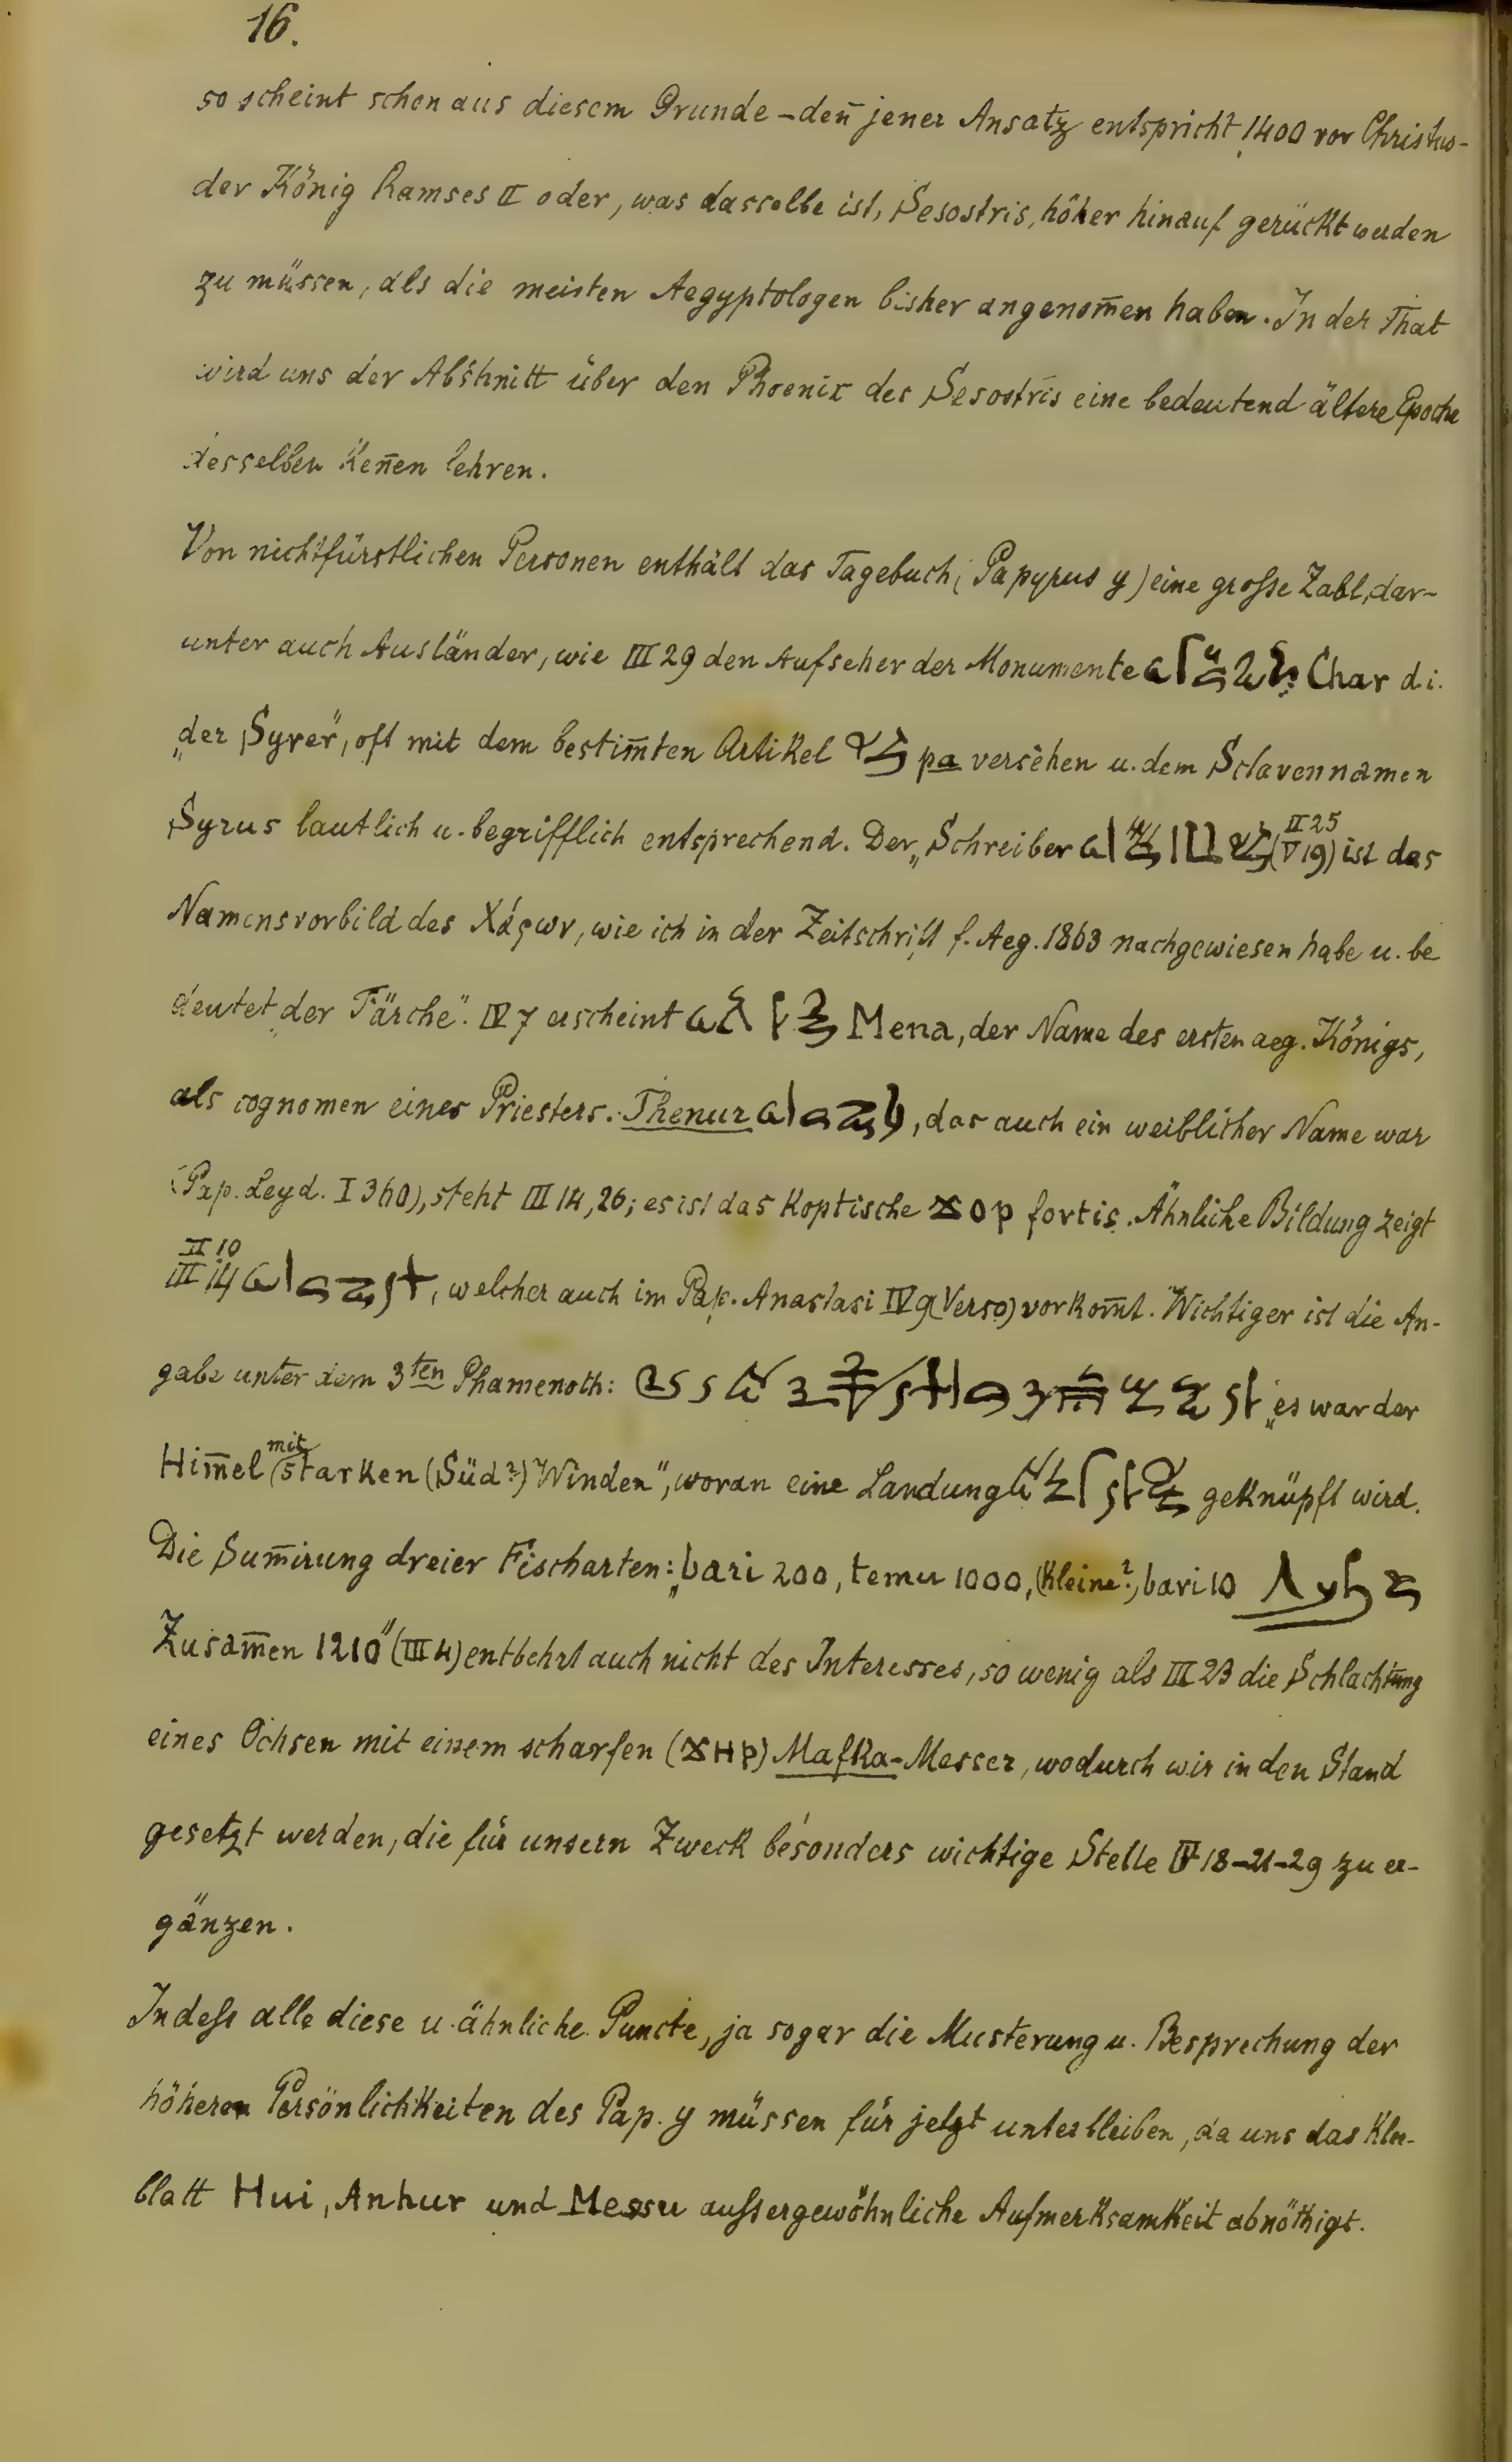 16.
so scheint schon aus diesem Grunde – den̄ jener Ansatz entspricht 1400 vor Christus –
der König Ramses II oder, was dasselbe ist, Sesostris, höher hinauf gerückt werden
zu müssen, als die meisten Aegyptologen bisher angenom̄en haben. In der That
wird uns der Abschnitt über den Phoenix des Sesostris eine bedeutend ältere Epoche
desselben ken̄en lehren.
Von nichtfürstlichen Personen enthält das Tagebuch (Papyrus y) eine grosse Zahl, dar-
unter auch Ausländer, wie III 29 den Aufseher der Monumente Char d.i.
„der Syrer", oft mit dem bestim̄ten Artikel pa versehen u. dem Sclavennamen
Syrus lautlich u. begrifflich entsprechend. Der „Schreiber (II 25 V 19) ist das
Namensvorbild des Χάρων, wie ich in der Zeitschrift f. Aeg. 1863 nachgewiesen habe u. be
deutet „der Färche". IV 7 erscheint Mena, der Name des ersten aeg. Königs,
als cognomen eines Priesters. Thenur, das auch ein weiblicher Name war
(Pap. Leyd. I 360), steht III 14, 26; es ist das Koptische ϫⲟⲣ fortis. Ähnliche Bildung zeigt
II 10 III 14, welcher auch im Pap. Anastasi IV 9 (Verso) vorkom̄t. Wichtiger ist die An-
gabe unter dem 3ten Phamenoth: „es war der
Him̄el mit (starken (Süd?) Winden", woran eine Landung geknüpft wird.
Die Sum̄irung dreier Fischarten: „bari 200, temu 1000, (Kleine?) bari 10
Zusam̄en 1210" (III 4) entbehrt auch nicht des Interesses, so wenig als III 23 die Schlachtung
eines Ochsen mit einem scharfen (ϫⲏⲣ) Mafka-Messer, wodurch wir in den Stand
gesetzt werden, die für unsern Zweck besonders wichtige Stelle 18–21–29 zu er-
gänzen.
Indess alle diese u. ähnliche Puncte, ja sogar die Musterung u. Besprechung der
höheren Persönlichkeiten des Pap. y müssen für jetzt unterbleiben, da uns das Klee-
blatt Hui, Anhur und Messu aussergewöhnliche Aufmerksamkeit abnöthigt.